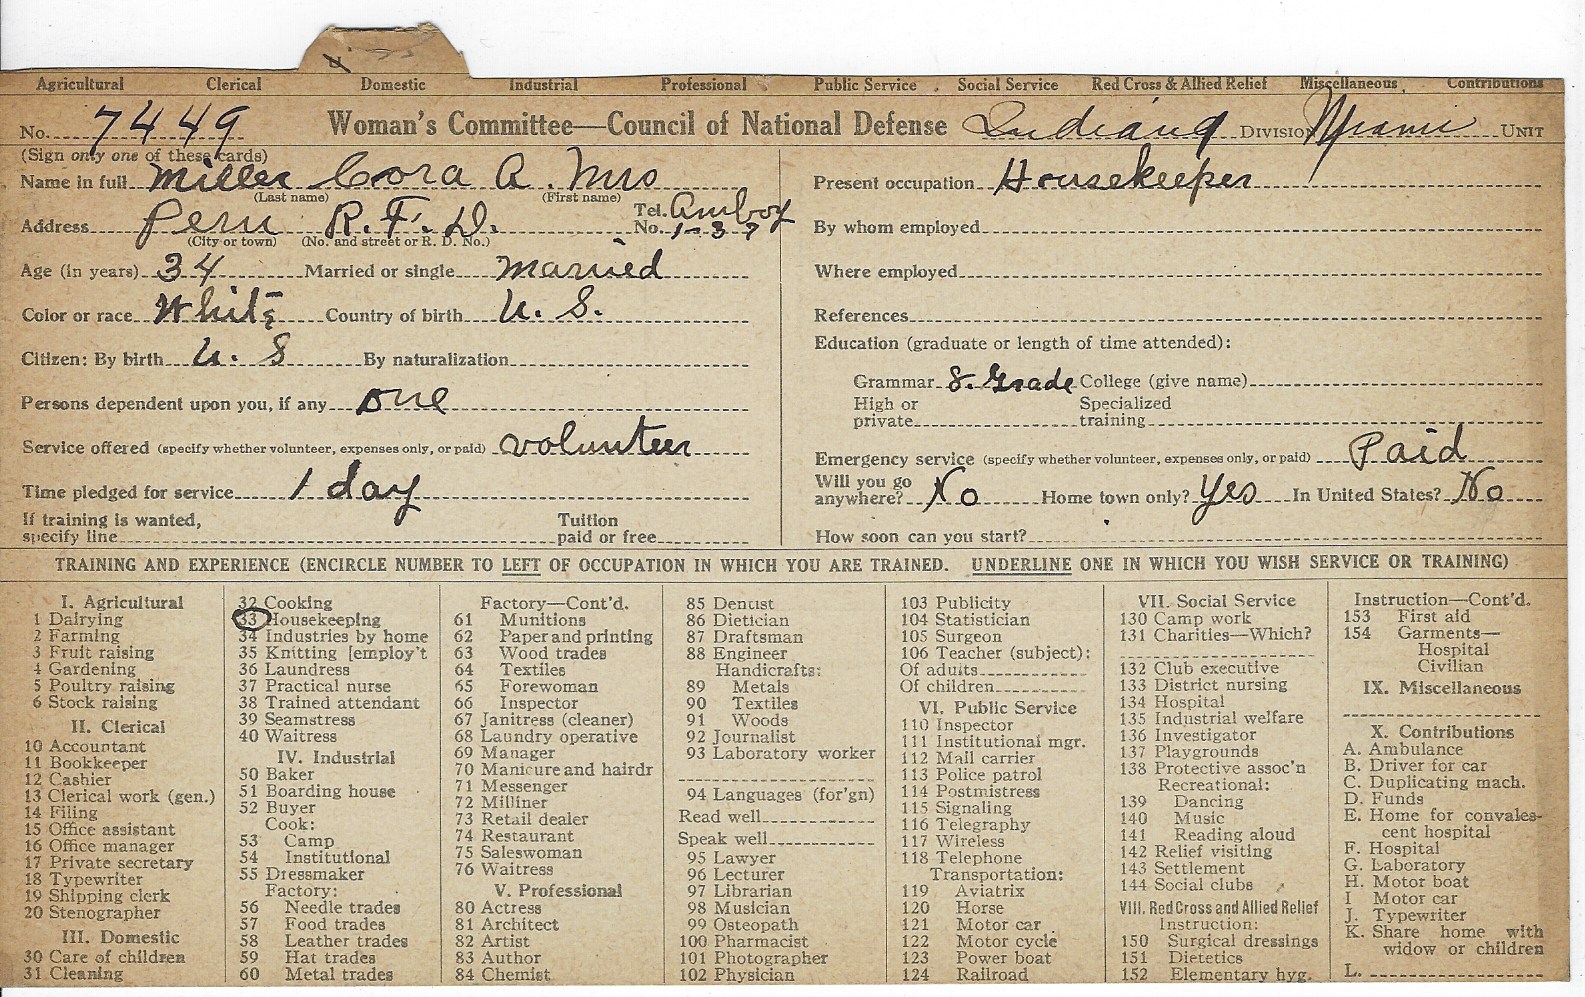 Agricultural Clerical Domestic Industrial Professional Public Service Social Service Red Cross & Allied Relief Miscellaneous Contributions
No. 7449 Woman's Committee—Council of National Defense Indiana DIVISION Miami UNIT
(Sign only one of these cards)
Name in full Miller Cora A. Mrs
(Last name) (First name)
Address Peru R. F. D. Tel. No. Amboy 1-37
(City or town) (No. and street or R. D. No.)
Age (in years) 34 Married or single Married
Color or race White Country of birth U. S.
Citizen: By birth U. S By naturalization
Persons dependent upon you, if any one
Service offered (specify whether volunteer, expenses only, or paid) volunteer
Time pledged for service 1 day
If training is wanted, specify line Tuition paid or free
Present occupation Housekeeper
By whom employed
Where employed
References
Education (graduate or length of time attended):
Grammar 8. Grade College (give name)
High or private Specialized training
Emergency service (specify whether volunteer, expenses only, or paid) Paid
Will you go anywhere? No Home town only? Yes In United States? No
How soon can you start?
TRAINING AND EXPERIENCE (ENCIRCLE NUMBER TO LEFT OF OCCUPATION IN WHICH YOU ARE TRAINED. UNDERLINE ONE IN WHICH YOU WISH SERVICE OR TRAINING)
I. Agricultural
1 Dairying
2 Farming
3 Fruit raising
4 Gardening
5 Poultry raising
6 Stock raising
II. Clerical
10 Accountant
11 Bookkeeper
12 Cashier
13 Clerical work (gen.)
14 Filing
15 Office assistant
16 Office manager
17 Private secretary
18 Typewriter
19 Shipping clerk
20 Stenographer
III. Domestic
30 Care of children
31 Cleaning
32 Cooking
33 Housekeeping
34 Industries by home
35 Knitting [employ't
36 Laundress
37 Practical nurse
38 Trained attendant
39 Seamstress
40 Waitress
IV. Industrial
50 Baker
51 Boarding house
52 Buyer
Cook:
53 Camp
54 Institutional
55 Dressmaker
Factory:
56 Needle trades
57 Food trades
58 Leather trades
59 Hat trades
60 Metal trades
Factory—Cont'd.
61 Munitions
62 Paper and printing
63 Wood trades
64 Textiles
65 Forewoman
66 Inspector
67 Janitress (cleaner)
68 Laundry operative
69 Manager
70 Manicure and hairdr
71 Messenger
72 Milliner
73 Retail dealer
74 Restaurant
75 Saleswoman
76 Waitress
V. Professional
80 Actress
81 Architect
82 Artist
83 Author
84 Chemist
85 Dentist
86 Dietician
87 Draftsman
88 Engineer
Handicrafts:
89 Metals
90 Textiles
91 Woods
92 Journalist
93 Laboratory worker
94 Languages (for'gn)
Read well
Speak well
95 Lawyer
96 Lecturer
97 Librarian
98 Musician
99 Osteopath
100 Pharmacist
101 Photographer
102 Physician
103 Publicity
104 Statistician
105 Surgeon
106 Teacher (subject):
Of adults
Of children
VI. Public Service
110 Inspector
111 Institutional mgr.
112 Mail carrier
113 Police patrol
114 Postmistress
115 Signaling
116 Telegraphy
117 Wireless
118 Telephone
Transportation:
119 Aviatrix
120 Horse
121 Motor car
122 Motor cycle
123 Power boat
124 Railroad
VII. Social Service
130 Camp work
131 Charities—Which?
132 Club executive
133 District nursing
134 Hospital
135 Industrial welfare
136 Investigator
137 Playgrounds
138 Protective assoc'n
Recreational:
139 Dancing
140 Music
141 Reading aloud
142 Relief visiting
143 Settlement
144 Social clubs
VIII. Red Cross and Allied Relief
Instruction:
150 Surgical dressings
151 Dietetics
152 Elementary hyg.
Instruction—Cont'd.
153 First aid
154 Garments—
Hospital
Civilian
IX. Miscellaneous
X. Contributions
A. Ambulance
B. Driver for car
C. Duplicating mach.
D. Funds
E. Home for convales-
cent hospital
F. Hospital
G. Laboratory
H. Motor boat
I Motor car
J. Typewriter
K. Share home with
widow or children
L.